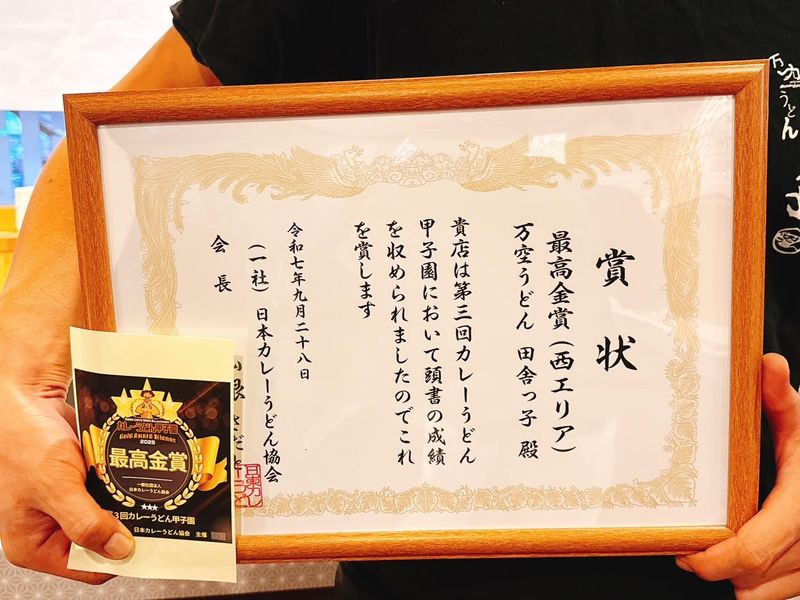 賞状
最高金賞(西エリア)
万空うどん 田舎っ子 殿
貴店は第三回カレーうどん
甲子園において頭書の成績
を収められましたのでこれ
を賞します
令和七年九月二十八日
(一社)日本カレーうどん協会
会長
カレーうどん甲子園
Gold Award Winner
2025
最高金賞
一般社団法人
日本カレーうどん協会
第3回カレーうどん甲子園
日本カレーうどん協会 主催
万空
うどん